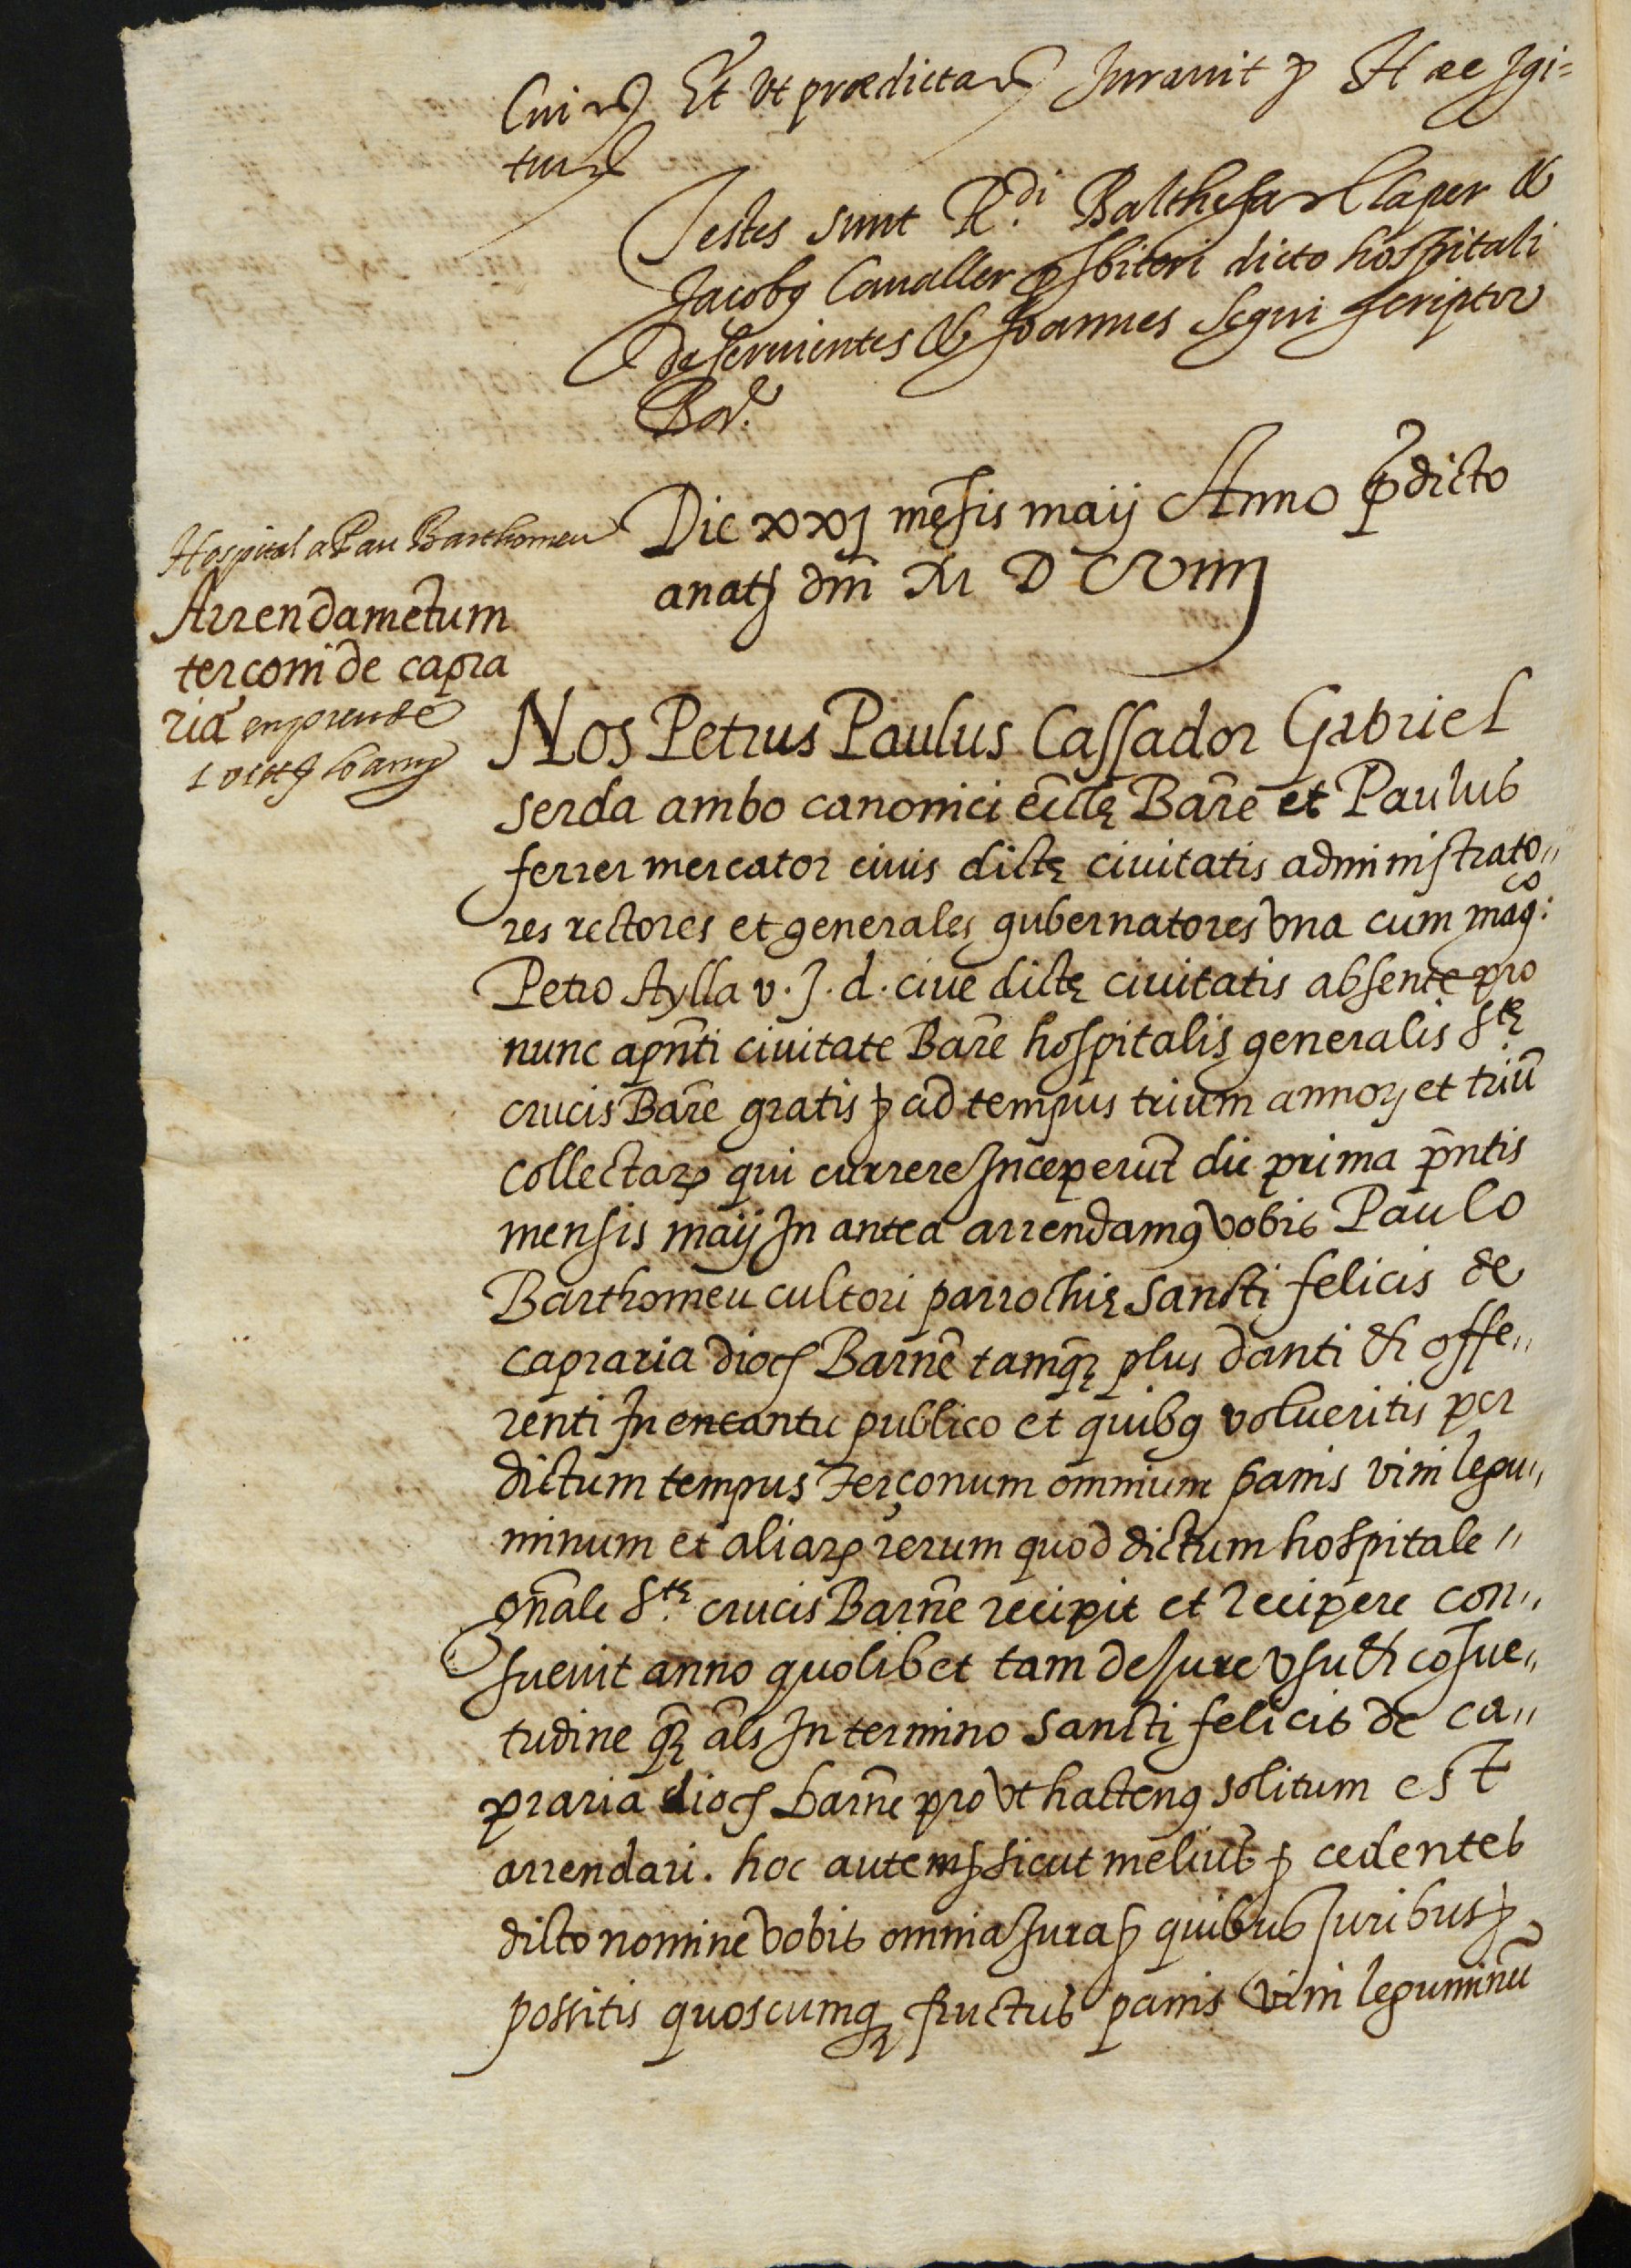 Et ut prædicta Juravit p Hæc Jgi=
tur
Testes sunt R.di Balthesar Claper &
Jacobus Cavaller presbiteri dicto hospitali
deservientes & Joannes Segui scriptor
Bar.e
Die xxj mēsis maij Anno p̄dicto
anatȷ dn̄i M D C Viiij
Hospital a Pau Barthomeu
Arrendamētum
terçoni de capra
ria
Nos Petrus Paulus Cassador Gabriel
serda ambo canonici ecc̄lę Barē et Paulus
ferrer mercator civis dictę civitatis administrato„
res rectores et generales gubernatores una cum mag:co
Petro Aylla v. J. d. cive dictę civitatis absente pro
nunc a pn̄ti civitate Barē hospitalis generalis S.tę
crucis Barē gratis p ad tempus trium annorꝫ et triū
collectarꝫ qui currere Inceperūt die prima pn̄tis
mensis maij In antea arrendamꝰ vobis Paulo
Barthomeu cultori parrochię Sancti felicis de
capraria dioc̄ Barn̄e tamq̄ꝫ plus danti & offe„
renti In encantu publico et quibꝰ volueritis per
dictum tempus Terçonum omnium panis vini legu„
minum et aliarꝫ rerum quod dictum hospitale„
gn̄ale S.tę crucis Barn̄e recipit et recipere con„
suevit anno quolibet tam de Jure usu & cōsue„
tudine q̄ꝫ al̄s In termino Sancti felicis de ca„
praria dioc̄ barn̄e pro ut hactenꝰ solitum est
arrendari. hoc autem p sicut melius p cedentes
dicto nomine vobis omnia Jura p quibus Juribus p
possitis quoscumqꝫ fructus panis vini leguminū